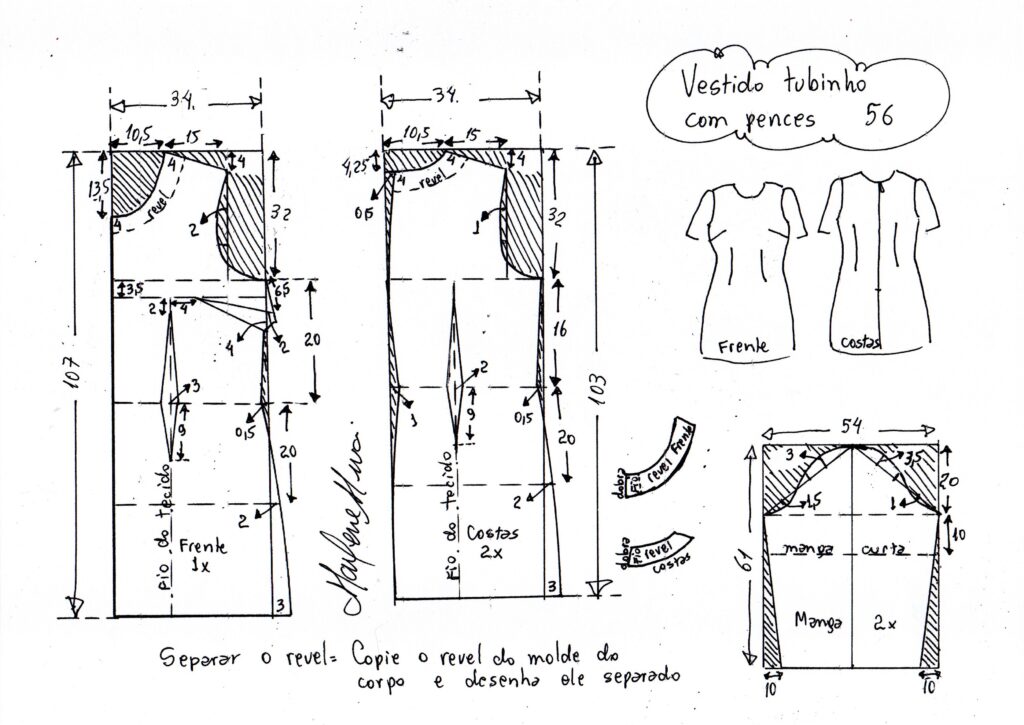 Vestido tubinho
com pences 56
34.
10,5
15
13,5
4
4
revel
4
2
32
3,5
6,5
2
4
4
2
20
107
3
9
0,5
20
2
fio do tecido
Frente
1x
3
34.
10,5
15
4,25
4
4
revel
4
0,5
1
32
16
103
2
9
1
20
2
fio do tecido
Costas
2x
3
Frente
costas
dobra
fio
revel Frente
dobra
fio
revel
costas
54
3
3,5
1,5
1
20
10
61
manga curta
Manga 2x
10
10
Separar o revel= Copie o revel do molde do
corpo e desenha ele separado